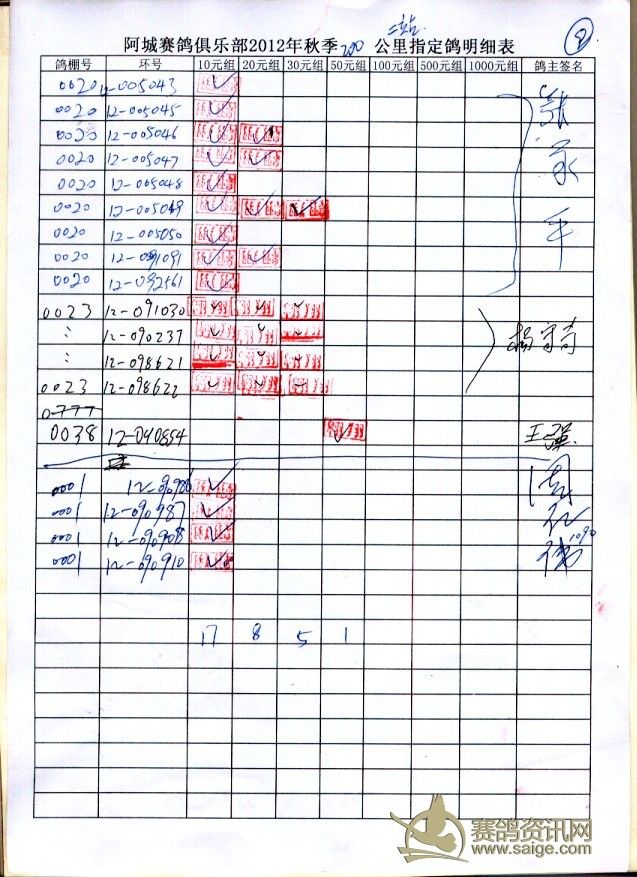 二站
阿城赛鸽俱乐部2012年秋季200公里指定鸽明细表
鸽棚号 环号 10元组 20元组 30元组 50元组 100元组 500元组 1000元组 鸽主签名
0020 12-005043
0020 12-005045
0020 12-005046
0020 12-005047
0020 12-005048
0020 12-005049
0020 12-005050
0020 12-091091
0020 12-092561
0023 12-091030
: 12-090237
: 12-098621
0023 12-098622
0777
0038 12-090854 王强
0001
0001 12-090987
0001 12-090908
0001 12-090910
17 8 5 1
赛鸽资讯网
www.saige.com